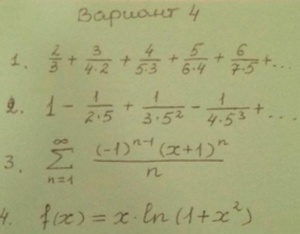 Вариант 4
1. 2/3 + 3/(4·2) + 4/(5·3) + 5/(6·4) + 6/(7·5) + ...
2. 1 - 1/(2·5) + 1/(3·5²) - 1/(4·5³) + ...
3. ∑_{n=1}^{∞} (-1)^{n-1}(x+1)^n / n
4. f(x) = x·ln(1+x²)